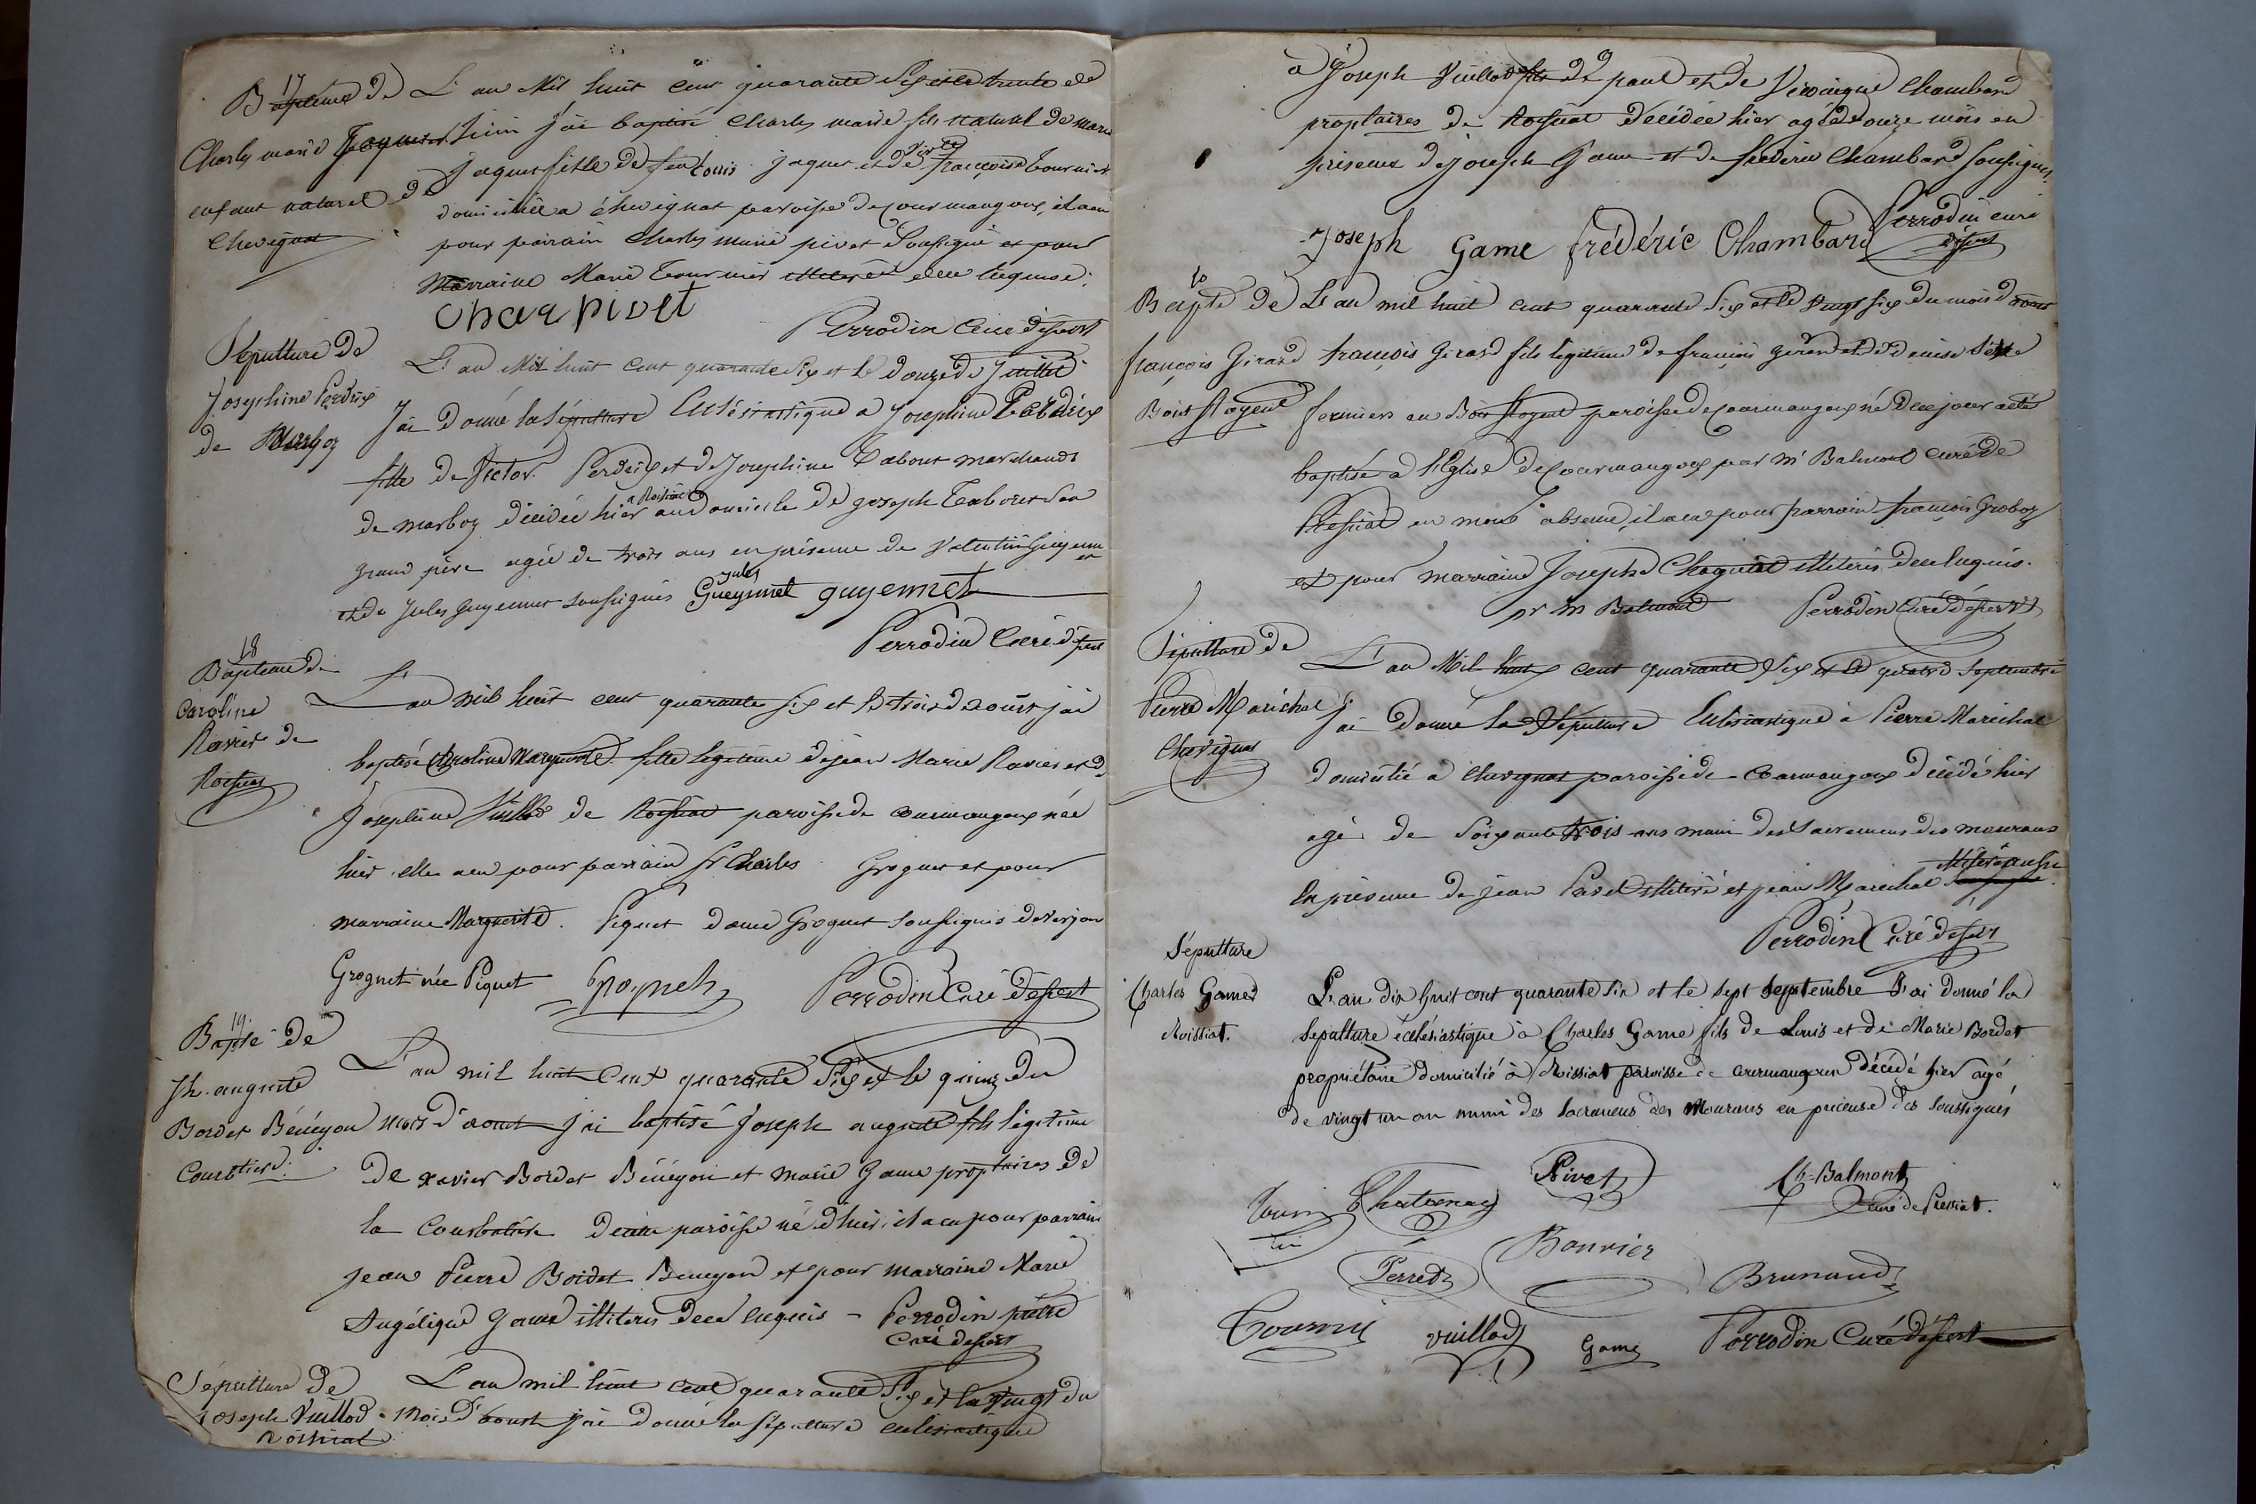 17
Baptême de
Charles marie Jaquet
enfant naturel de
Chevignat
L'an Mil huit cent quarante Six et le trente de
Juin j'ai baptisé Charles marie fils naturel de marie
jaquet fille de feu Louis jaquet et de françoise Tournier
domiciliée a chevignat paroisse de courmangoux, il a eu
pour parrain Charles marie pivet Soussigné et pour
Marraine Marie Tournier illiterée de ce enquise.
Char pivet
Perrodin Curé desservt
Sépulture de
Josephine Perdrix
de Marboz
L'an Mil huit cent quarante Six et le douze de Juillet
J'ai donné la Sépulture Eclésiastique a Josephine Perdrix
fille de Victor Perdrix et de Josephine Tabouet marchands
de marboz décédée hier a Roissiat au Domicile de joseph Tabouet Son
grand père agée de trois ans en présence de Valentin Guyennet
et de Jules Guyennet soussignés Jules Gueyennet guyennet
Perrodin Curé desservt
18
Baptême de
Caroline
Ravier de
Roissiat
L'an mil huit cent quarante six et le trois de aoust j'ai
baptisé Caroline Marguerite fille légitime de jean Marie Ravier et de
Josephine Vuillod de Roissiat paroisse de courmangoux née
hier elle a eu pour parrain Sr Charles Grognet et pour
marraine Marguerite Piquet dame Grognet soussignés de Verjon
Grognet née Piquet Grognet Perrodin Curé desservt
19
Bapte de
Jh. auguste
Bordet Bénéyon
Courbatière
L'an mil huit Cent quarante Six et le quinze du
mois d'aoust j'ai baptisé Joseph auguste fils légitime
de xavier Bordet Bénéyon et marie Game proptaires de
la Courbatière de cette paroisse né d'hier, il a eu pour parrain
jean Pierre Bordet Beneyon et pour marraine Marie
Angélique Game illiterés de ce enquis - Perrodin prêtre
Curé desservt
Sépulture de
joseph Vuillod
Roissiat
L'an mil huit cent quarante Six et le vingt du
Mois d'aoust j'ai donné la sépulture eclésiastique
a Joseph Vuillod fils de paul et de Veronique Chambard
proptaires de Roissiat décédée hier agé de onze mois en
présence de joseph Game et de frédéric Chambard soussignés
Joseph Game frédéric Chambard Perrodin curé
desservt
20
Bapte de
françois Girard
Bois floyent
L'an mil huit cent quarante Six et le vingt six du mois d'aoust
françois Girard fils légitime de françois girard et de denise
fermiers au Bois floyent paroisse de courmangoux né de ce jour a été
baptisé a l'Eglise de Courmangoux par Mr Balmont curé de
Pressiat en mon absence, il a eu pour parrain françois Groboz
et pour marraine Josephe Chaquet illiterés de ce enquis.
pr Mr Balmont Perrodin Curé desservt
Sépulture de
Pierre Maréchal
Chevignat
L'an Mil huit cent quarante Six et le quatre Septembre
j'ai donné la Sépulture Eclésiastique à Pierre Maréchal
domicilié a chevignat paroisse de courmangoux décédé hier
agé de Soixante trois ans muni des Sacremens des mourans
en présence de jean Pavet illiteré et jean Marechal illiteré aussi
Perrodin Curé desservt
Sépulture
Charles Game
Roissiat.
L'an dix huit cent quarante six et le sept Septembre J'ai donné la
Sepulture écclésiastique à Charles Game fils de Louis et de Marie Bordet
propriétaire domicilié à Roissiat paroisse de courmangoux décédé hier agé
de vingt un an muni des Sacremens des Mourans en présence des soussignés
Pivet Ch. Balmont
Chatenay curé de Pressiat.
Perret Bouvier Brunaud
Tournier vuillod Game Perrodin Curé desservt